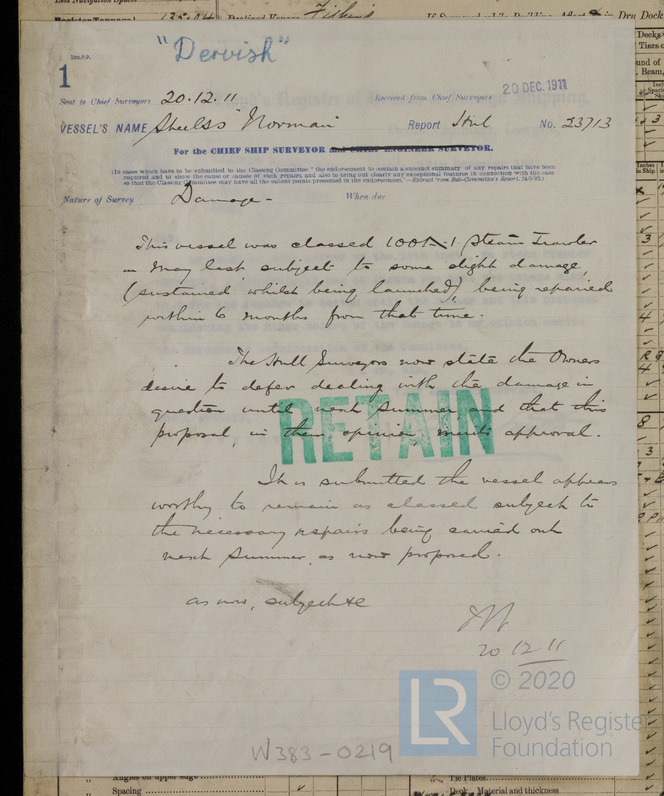 "Dervish"
1
Sent to Chief Surveyors 20.12.11 Received from Chief Surveyors 20 DEC. 1911
VESSEL'S NAME Norman Report Hull No. 23713
For the CHIEF SHIP SURVEYOR and CHIEF ENGINEER SURVEYOR.
(In cases which have to be submitted to the Classing Committee "the endorsement to contain a succinct summary of any repairs that have been
required and to show the cause or causes of such repairs, and also to bring out clearly any exceptional features in connection with the case
so that the Classing Committee may have all the salient points presented in the endorsement."—Extract from Sub-Committee's Report,
Nature of Survey Damage - When due
This vessel was classed 100A.1 Steam Trawler
in May last, subject to some slight damage,
(sustained whilst being launched), being repaired
within 6 months from that time.
The Hull Surveyors now state the Owners
desire to defer dealing with the damage in
question until next summer and that this
proposal, in their opinion, merits approval.
RETAIN
It is submitted the vessel appears
worthy to remain as classed subject to
the necessary repairs being carried out
next summer, as now proposed.
as now, subject &c
20 12 11
© 2020
LR
Lloyd's Register
Foundation
W383-0219
Angles on upper edge
Spacing
Tie Plates
Deck, Material and thickness